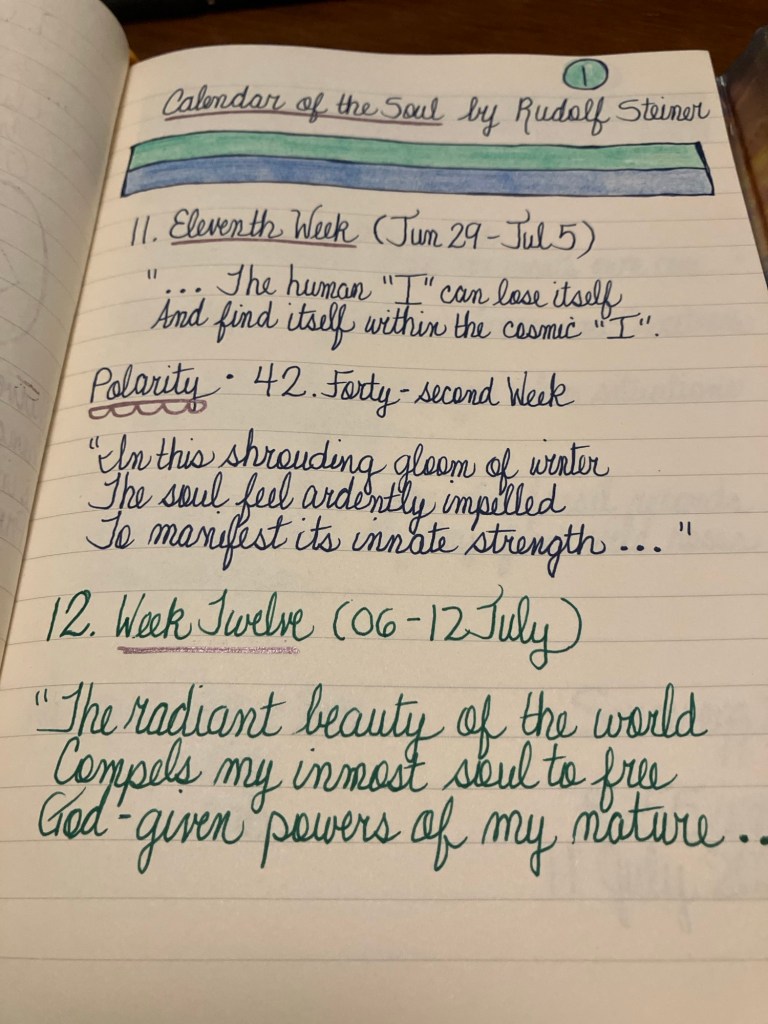 1
Calendar of the Soul by Rudolf Steiner
11. Eleventh Week (Jun 29 - Jul 5)
"... The human "I" can lose itself
And find itself within the cosmic "I".
Polarity • 42. Forty-second Week
"In this shrouding gloom of winter
The soul feel ardently impelled
To manifest its innate strength ..."
12. Week Twelve (06-12 July)
"The radiant beauty of the world
Compels my inmost soul to free
God-given powers of my nature ..